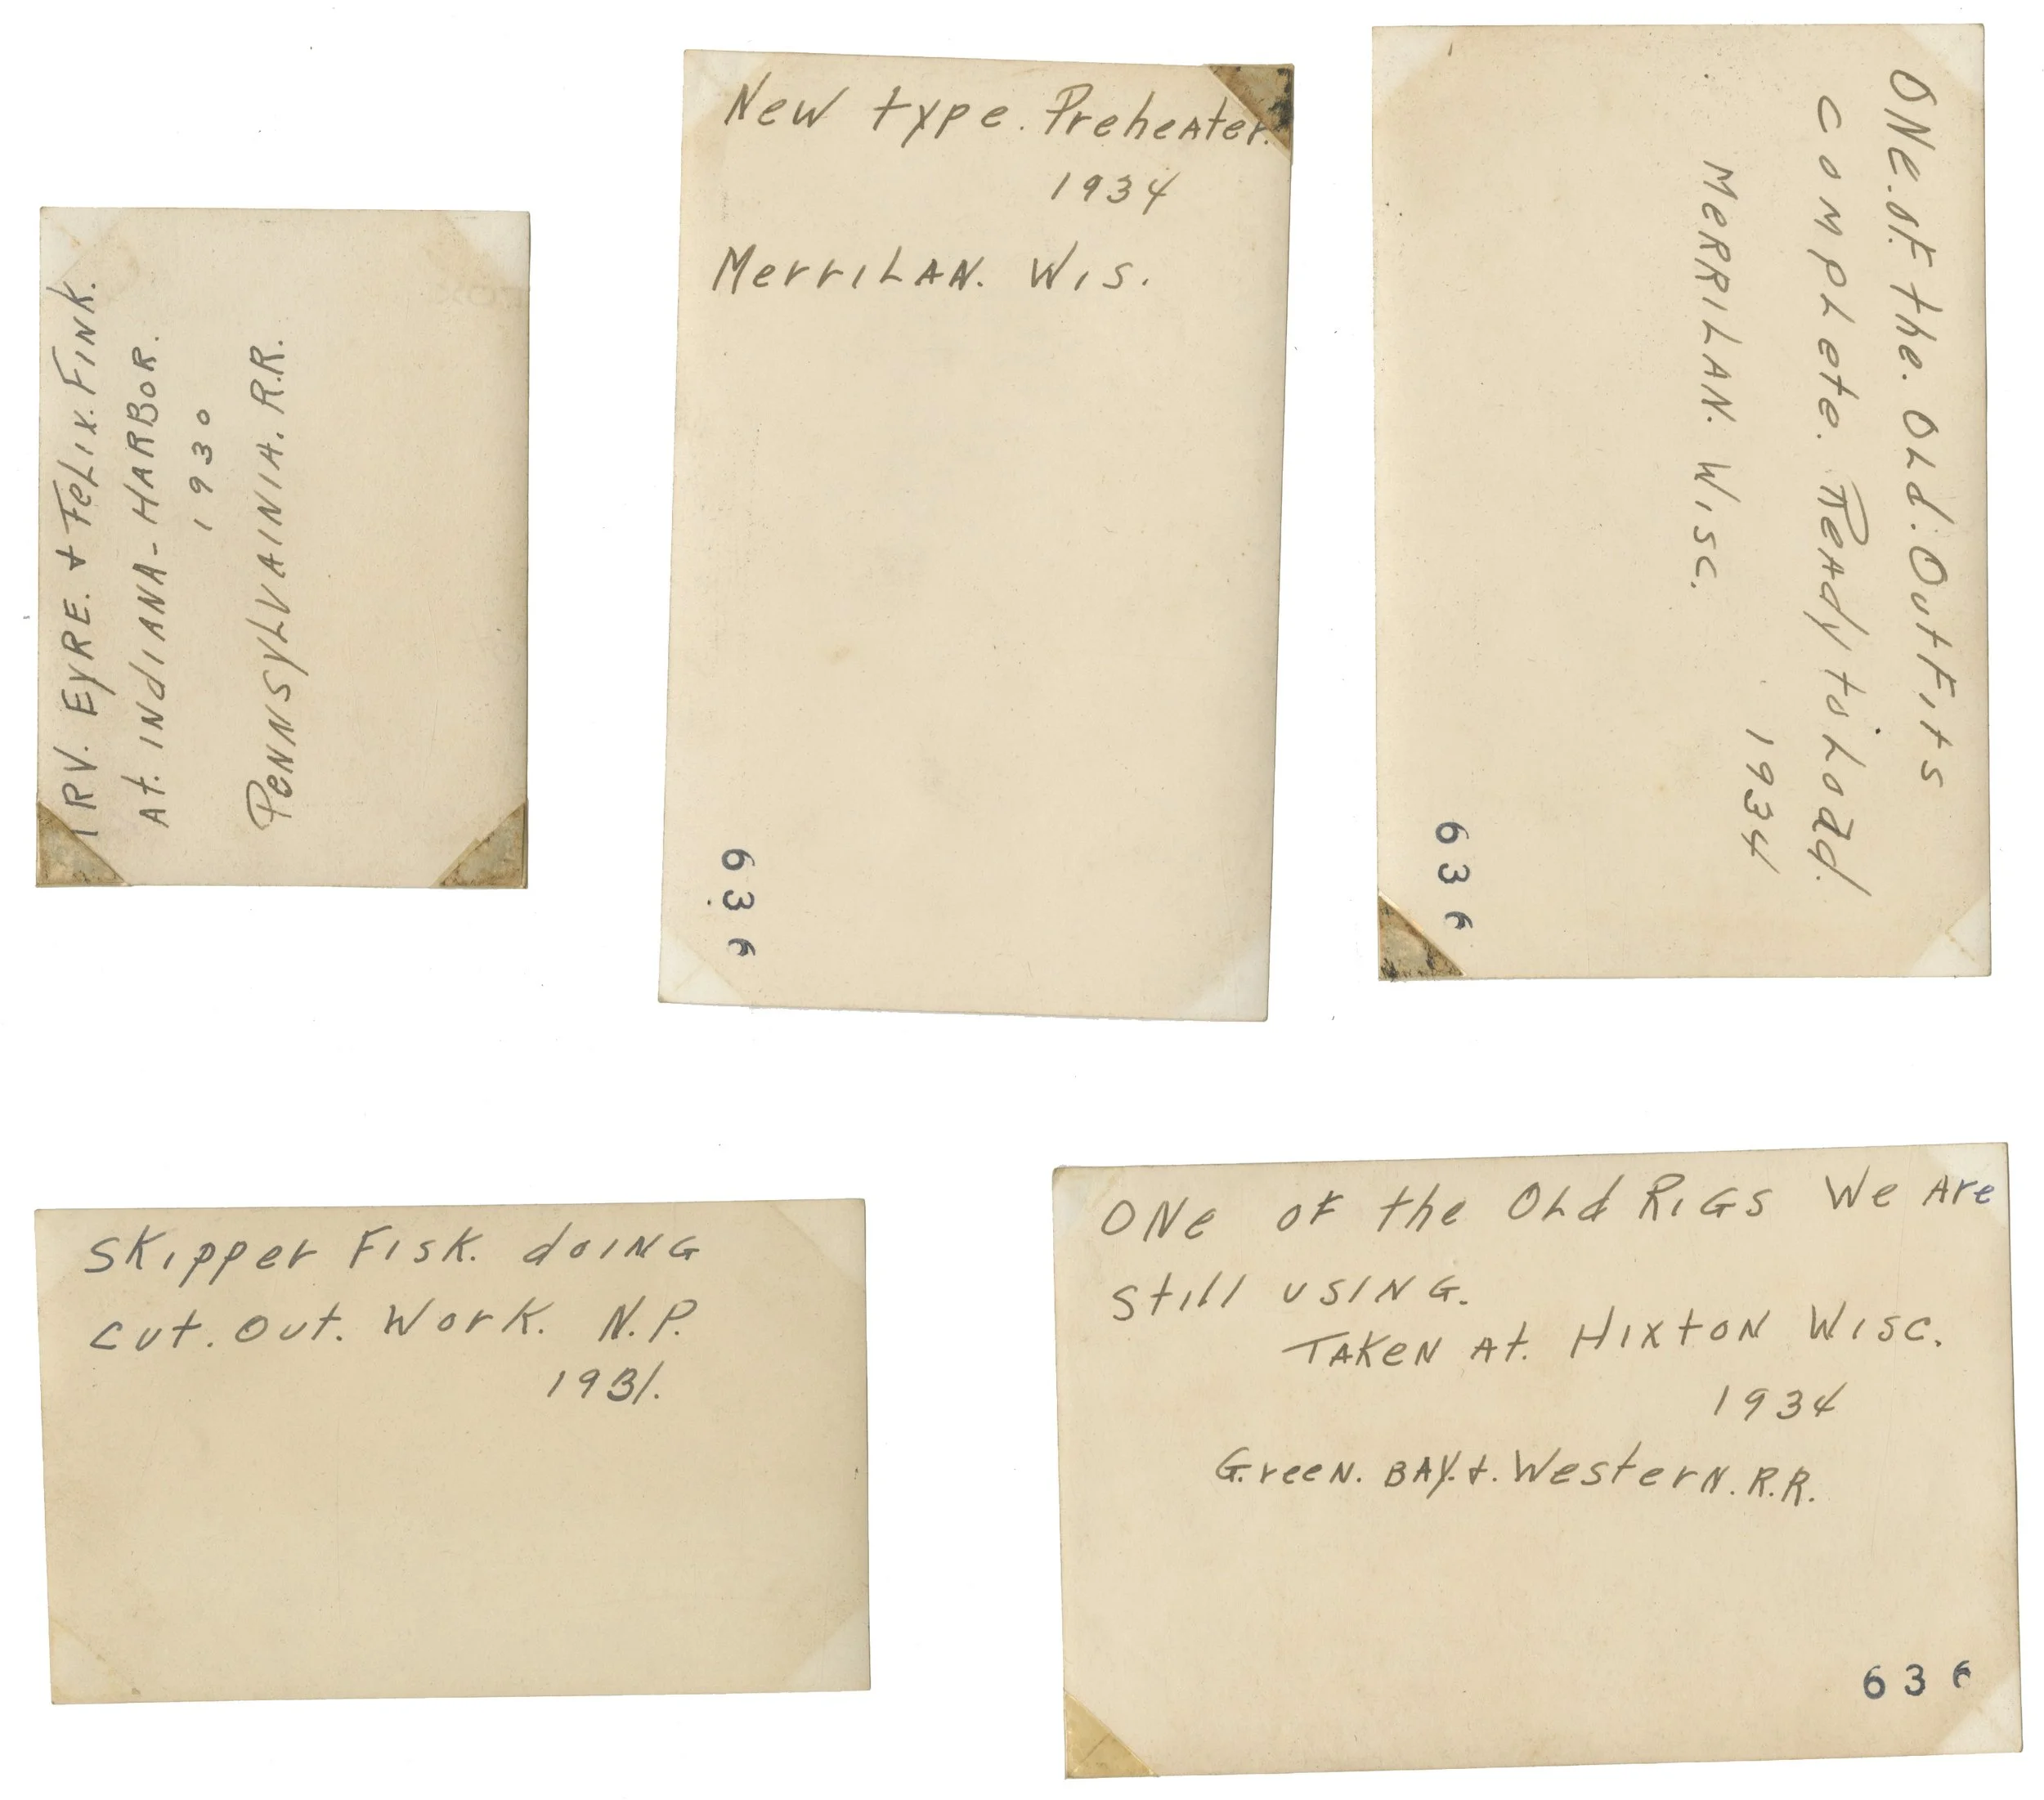 IRV. EyRE. + FeLix. FINK.
At. INdIANA-HARBOR.
1930
PeNNSyLVAINIA. R.R.
New type. Preheater.
1934
MerriLAN. Wis.
636
ONe. of. the. OLd. OutFits
complete. Ready to Load.
1934
MeRRILAN. Wisc.
636
Skipper Fisk. doING
cut. out. Work. N.P.
1931.
ONe of the OLd RIGS We Are
still USING.
TAKeN At. HIXtON WISC.
1934
GreeN. BAY. +. WesterN. R.R.
636